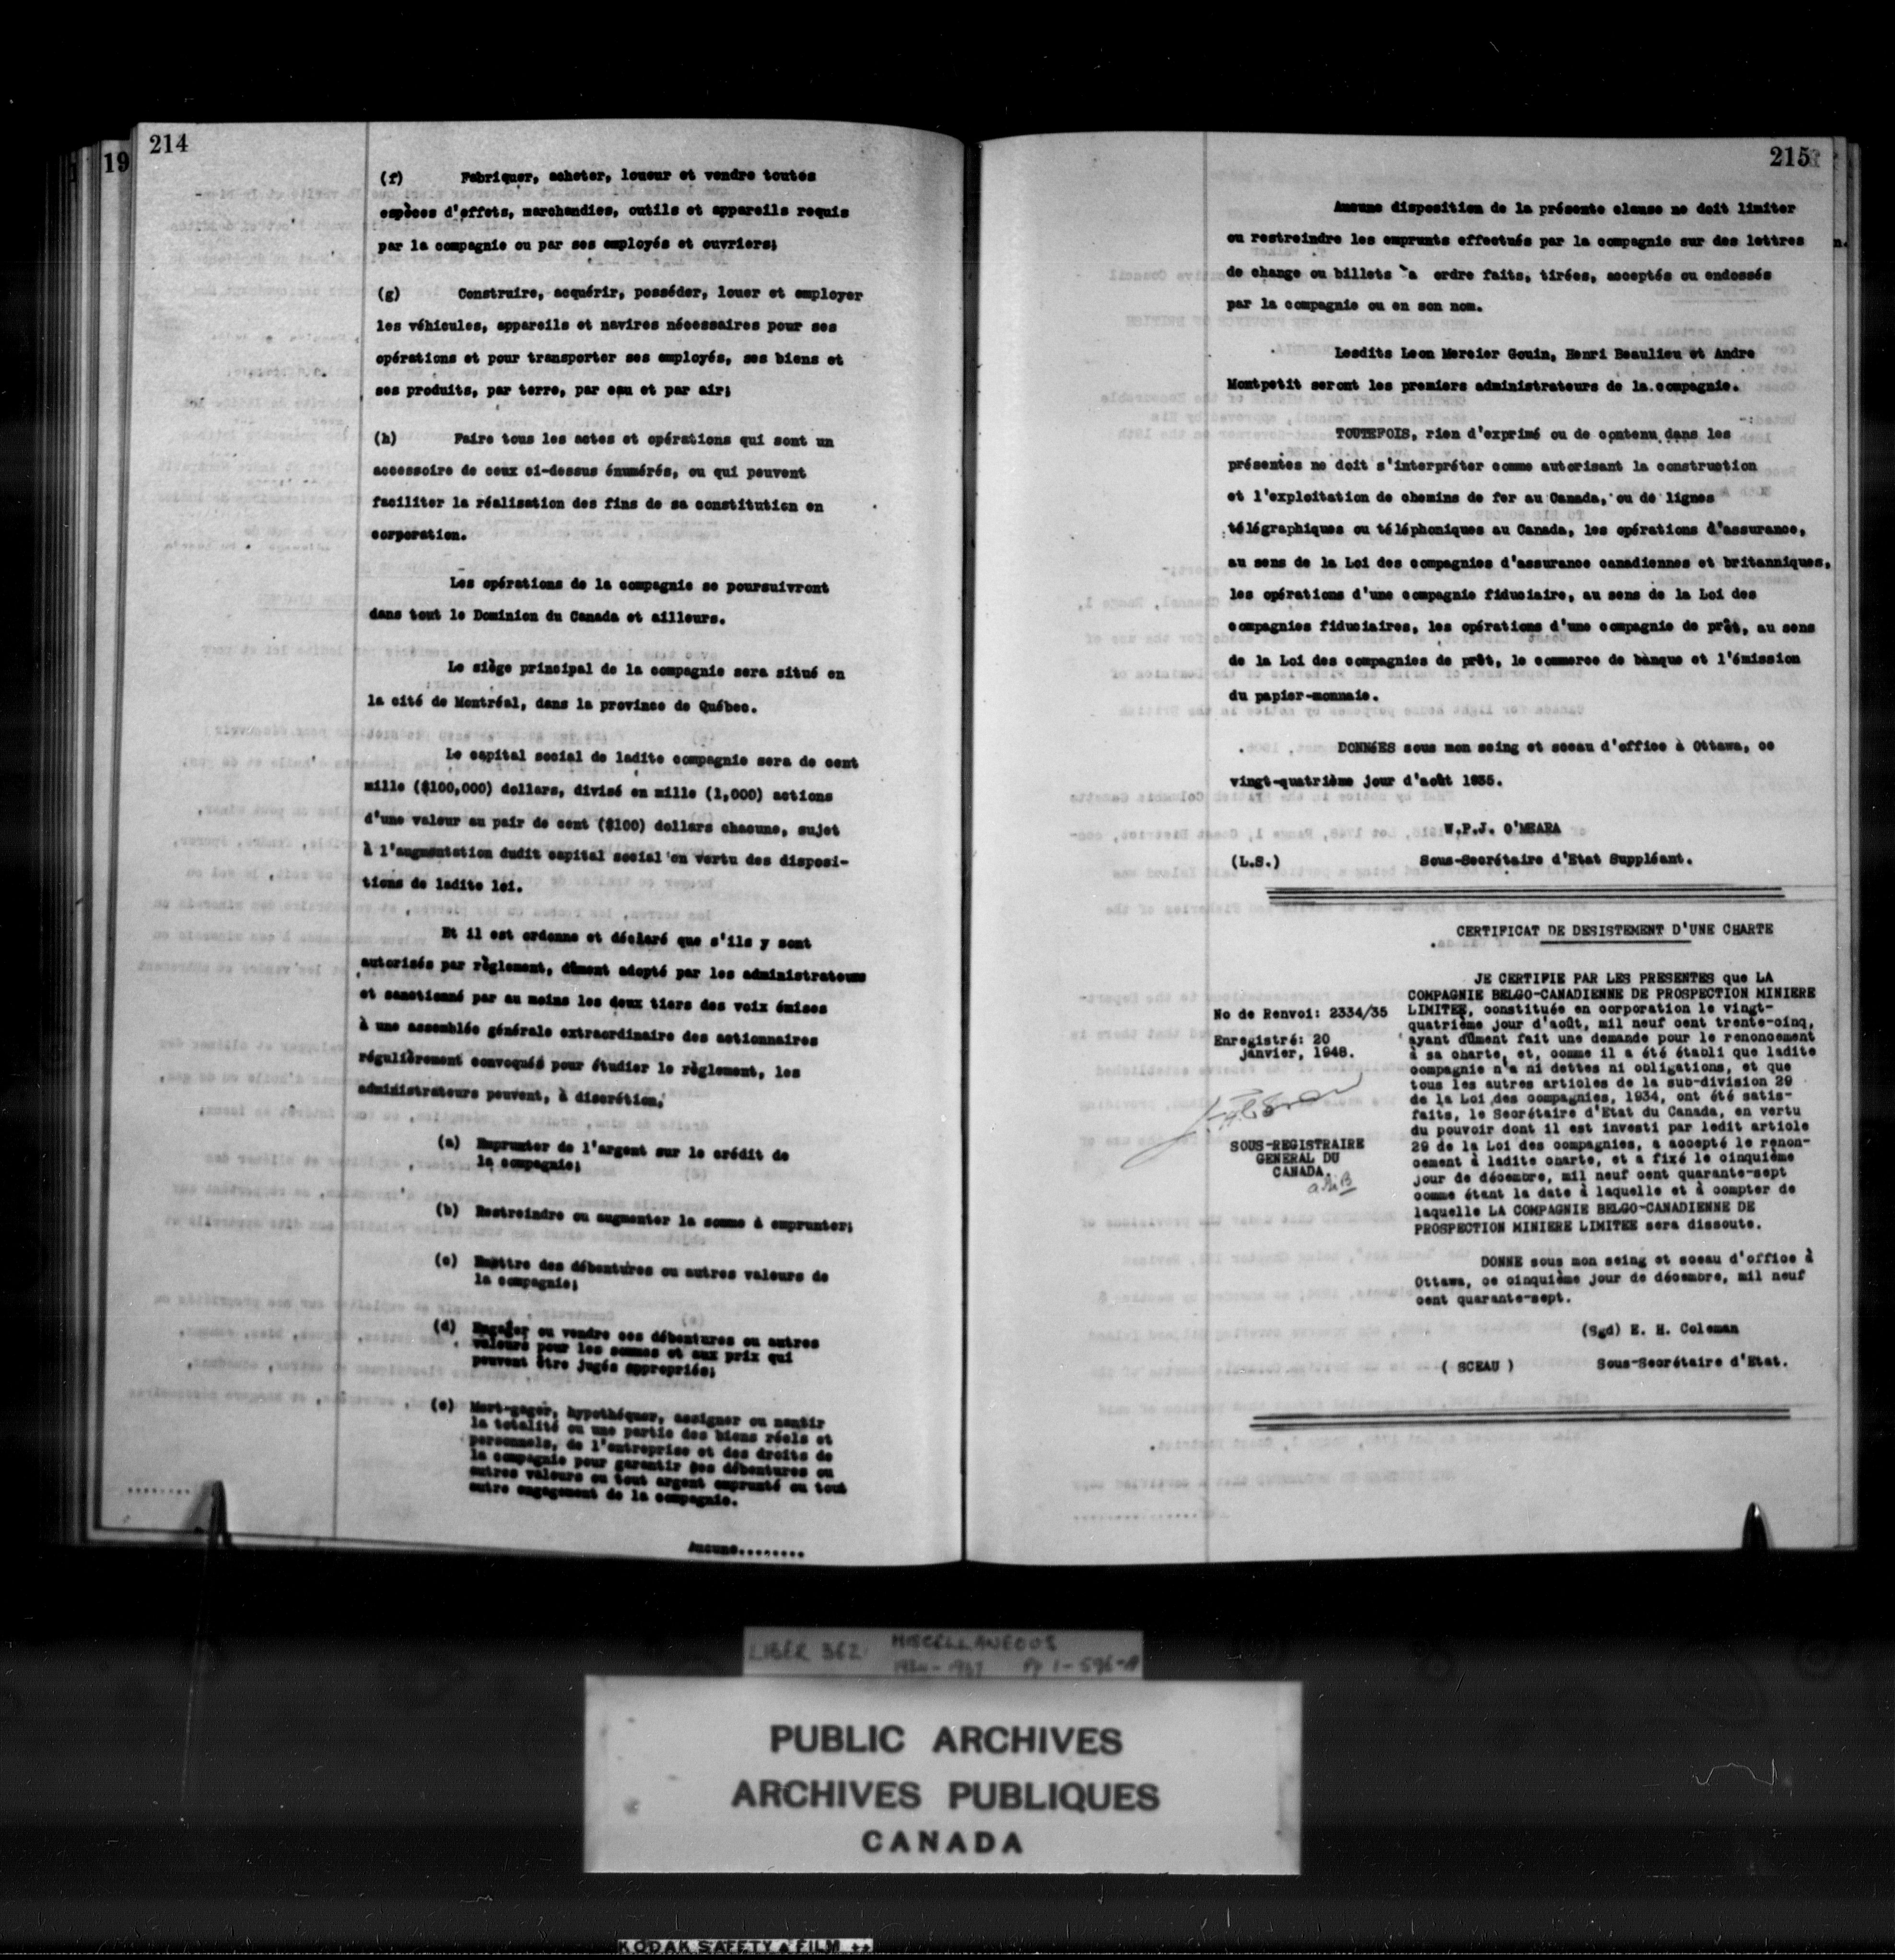 214
19
(f) Fabriquer, acheter, loueur et vendre toutes
espèces d'effets, marchandies, outils et appareils requis
par la compagnie ou par ses employés et ouvriers;
(g) Construire, acquérir, posséder, louer et employer
les véhicules, appareils et navires nécessaires pour ses
opérations et pour transporter ses employés, ses biens et
ses produits, par terre, par eau et par air;
(h) Faire tous les actes et opérations qui sont un
accessoire de ceux ci-dessus énumérés, ou qui peuvent
faciliter la réalisation des fins de sa constitution en
corporation.
Les opérations de la compagnie se poursuivront
dans tout le Dominion du Canada et ailleurs.
Le siège principal de la compagnie sera situé en
la cité de Montréal, dans la province de Québec.
Le capital social de ladite compagnie sera de cent
mille ($100,000) dollars, divisé en mille (1,000) actions
d'une valeur au pair de cent ($100) dollars chacune, sujet
à l'augmentation dudit capital social en vertu des disposi-
tions de ladite loi.
Et il est ordonne et déclaré que s'ils y sont
autorisés par règlement, dûment adopté par les administrateurs
et sanctionné par au moins les deux tiers des voix émises
à une assemblée générale extraordinaire des actionnaires
régulièrement convoqués pour étudier le règlement, les
administrateurs peuvent, à discrétion,
(a) Emprunter de l'argent sur le crédit de
la compagnie;
(b) Restreindre ou augmenter la somme à emprunter;
(c) Emettre des débentures ou autres valeurs de
la compagnie;
(d) Engager ou vendre ces débentures ou autres
valeurs pour les sommes et aux prix qui
peuvent être jugés appropriés;
(e) Mort-gager, hypothéquer, assigner ou nantir
la totalité ou une partie des biens réels et
personnels, de l'entreprise et des droits de
la compagnie pour garantir ses débentures ou
autres valeurs ou tout argent emprunté ou tout
autre engagement de la compagnie.
Aucune........
215
Aucune disposition de la présente clause ne doit limiter
ou restreindre les emprunts effectués par la compagnie sur des lettres
de change ou billets `a ordre faits, tirées, acceptés ou endossés
par la compagnie ou en son nom.
Lesdits Leon Mercier Gouin, Henri Beaulieu et Andre
Montpetit seront les premiers administrateurs de la compagnie.
TOUTEFOIS, rien d'exprimé ou de contenu dans les
présentes ne doit s'interpréter comme autorisant la construction
et l'exploitation de chemins de fer au Canada, ou de lignes
télégraphiques ou téléphoniques au Canada, les opérations d'assurance,
au sens de la Loi des compagnies d'assurance canadiennes et britanniques,
les opérations d'une compagnie fiduciaire, au sens de la Loi des
compagnies fiduciaires, les opérations d'une compagnie de prêt, au sens
de la Loi des compagnies de prêt, le commerce de banque et l'émission
du papier-monnaie.
DONNéES sous mon seing et sceau d'office à Ottawa, ce
vingt-quatrième jour d'août 1935.
W.P.J. O'MEARA
(L.S.) Sous-Secrétaire d'Etat Suppléant.
CERTIFICAT DE DESISTEMENT D'UNE CHARTE
No de Renvoi: 2334/35
Enregistré: 20
janvier, 1948.
SOUS-REGISTRAIRE
GENERAL DU
CANADA.
JE CERTIFIE PAR LES PRESENTES que LA
COMPAGNIE BELGO-CANADIENNE DE PROSPECTION MINIERE
LIMITEE, constituée en corporation le vingt-
quatrième jour d'août, mil neuf cent trente-cinq,
ayant dûment fait une demande pour le renoncement
à sa charte, et, comme il a été établi que ladite
compagnie n'a ni dettes ni obligations, et que
tous les autres articles de la sub-division 29
de la Loi des compagnies, 1934, ont été satis-
faits, le Secrétaire d'Etat du Canada, en vertu
du pouvoir dont il est investi par ledit article
29 de la Loi des compagnies, a accepté le renon-
cement à ladite charte, et a fixé le cinquième
jour de décembre, mil neuf cent quarante-sept
comme étant la date à laquelle et à compter de
laquelle LA COMPAGNIE BELGO-CANADIENNE DE
PROSPECTION MINIERE LIMITEE sera dissoute.
DONNE sous mon seing et sceau d'office à
Ottawa, ce cinquième jour de décembre, mil neuf
cent quarante-sept.
(Sgd) E. H. Coleman
( SCEAU ) Sous-Secrétaire d'Etat.
LIBER 362 MISCELLANEOUS
1934-1937 Pp 1-596-A
PUBLIC ARCHIVES
ARCHIVES PUBLIQUES
CANADA
KODAK SAFETY FILM